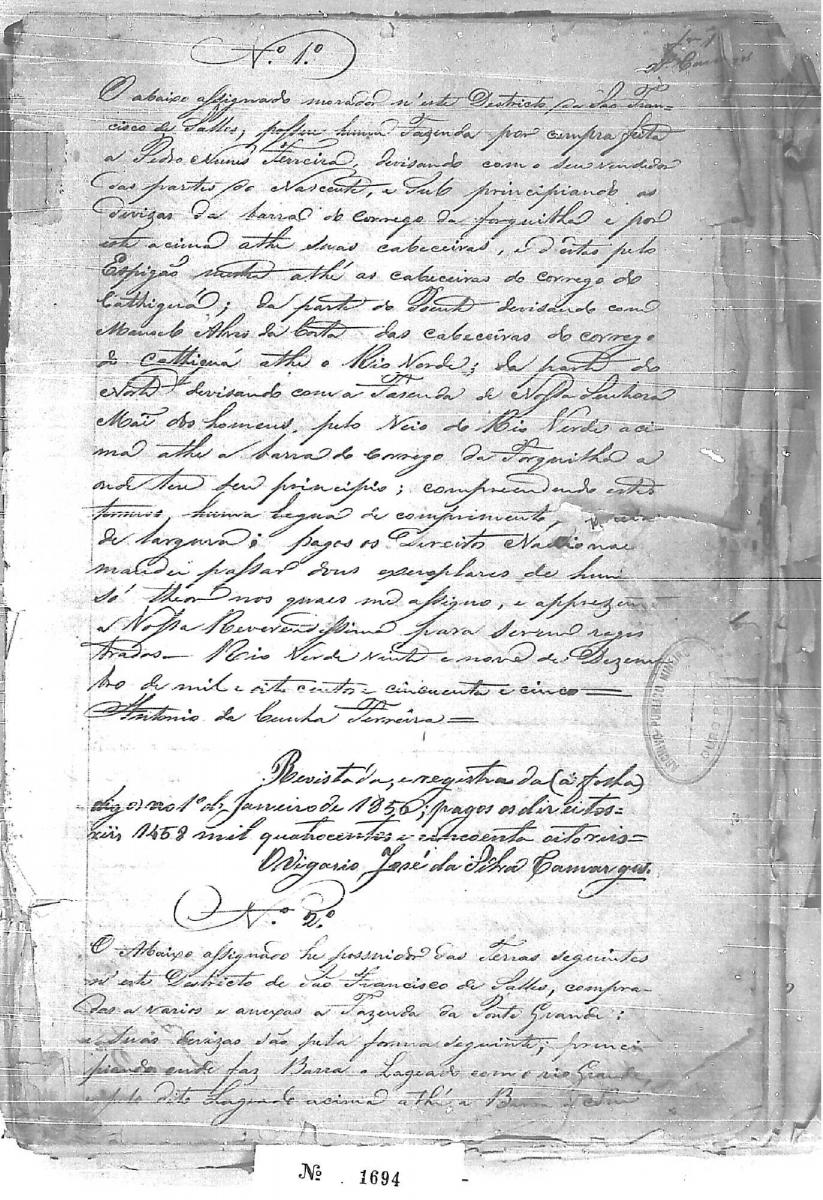 N.º 1.º
O abaixo assignado morador n'este Destricto de São Fran-
cisco de Salles, possue huma Fazenda por compra feita
a Pedro Nunes Ferreira, devisando com o seu vendedor
das partes do Nascente, e Sul principiando as
divizas da barra do corrego da forquilha e por
este acima athe suas cabeceiras, e d'estas pelo
Espigão athé as cabeceiras do corrego do
Cathiguá; da parte do Poente devisando com
Manoel Alves da Costa das cabeceiras do corrego
do Cathiguá athe o Rio Verde; da parte do
Norte devisando com a Fasenda de Nossa Senhora
Mãi dos homens, pelo Veio do Rio Verde aci-
ma athe a barra do Corrego da Forquilha a
onde teve seu principio; compreendendo estes
huma legua de comprimento,
de largura; pagos os Direitos Nacionae
mandei passar dous exemplares de hum
só theor nos quaes me assigno, e apprezen
a Vossa Reverendissima para serem regis
trados — Rio Verde vinte e nove de Dezem
bro de mil e oito centos e cincoenta e cinco —
Antonio da Cunha Ferreira —
Revistada, e registrada (a folha)
digo) no 1º de Janeiro de 1856; pagos os direitos
reis 1458 mil quatrocentos e cincoenta oito reis —
O Vigario José da Silva Camargos.
N.º 2.º
O Abaixo assignado he possuidor das Terras seguintes
n'este Districto de São Francisco de Salles, compra-
das a varios e anexas a Fazenda da Ponte Grande:
e suas devizas são pela forma seguinte; princi
piando onde faz Barra o Lageado com o rio Grande,
e pelo dito Lageado acima athé a Barra
ARCHIVO PUBLICO MINEIRO
OURO PRETO
Nº 1694 -